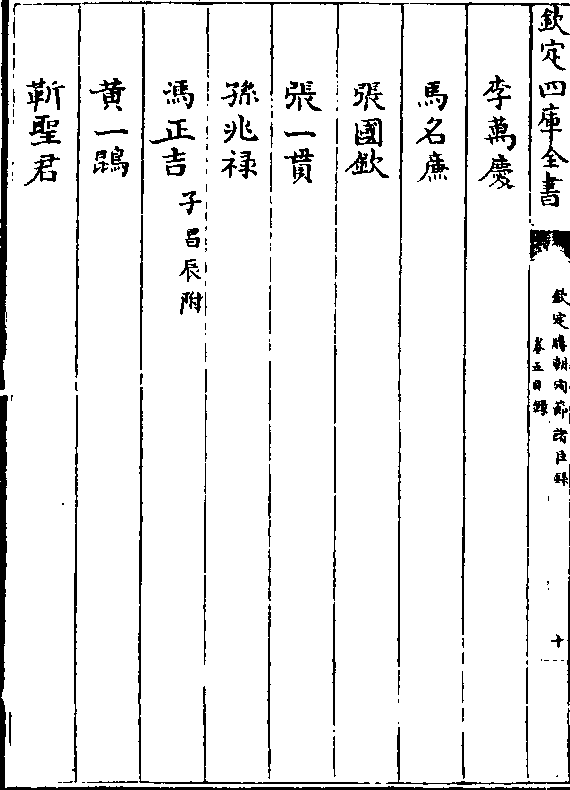 欽定四庫全書
欽定勝朝殉節諸臣錄
卷五目錄
十
李萬慶
馬名廉
張國欽
張一貫
孫兆祿
馮正吉
子昌辰附
黃一鵾
靳聖君